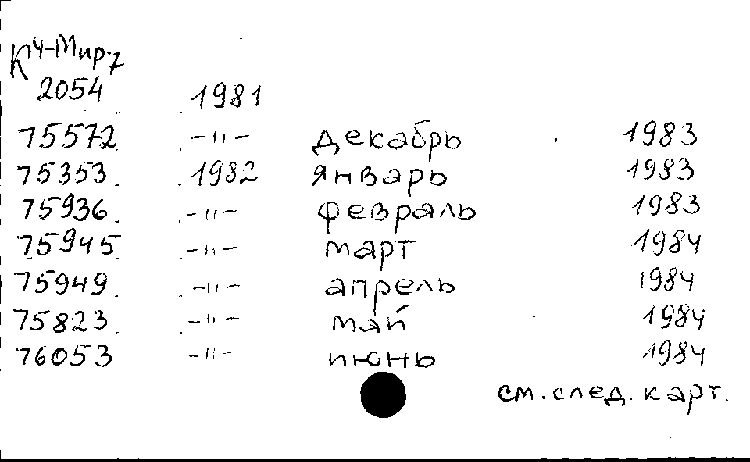 К4-Мир-7
2054 1981
75572 -"- декабрь 1983
75353 1982 январь 1983
75936 -"- февраль 1983
75945 -"- март 1984
75949 -"- апрель 1984
75823 -"- май 1984
76053 -"- июнь 1984
см. след. карт.